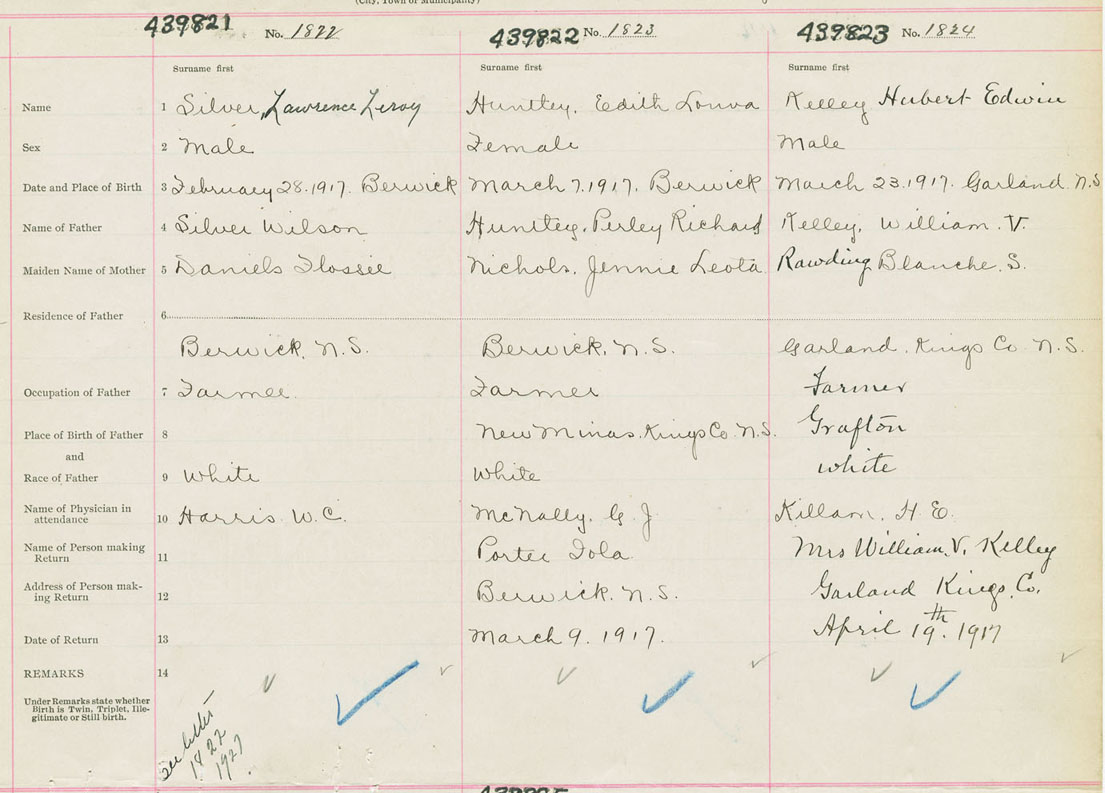 (City, Town or Municipality)
439821 No. 1822 439822 No. 1823 439823 No. 1824
Surname first Surname first Surname first
Name 1 Silver, Lawrence Leroy Huntley, Edith Louva Kelley Hubert Edwin
Sex 2 Male Female Male
Date and Place of Birth 3 February 28.1917. Berwick March 7.1917. Berwick March 23.1917. Garland N.S
Name of Father 4 Silver Wilson Huntley, Perley Richard Kelley, William. V.
Maiden Name of Mother 5 Daniels Flossie Nichols, Jennie Leota Rawding Blanche. S.
Residence of Father 6
Berwick, N.S. Berwick, N.S. Garland, Kings Co N.S.
Occupation of Father 7 Farmer Farmer Farmer
Place of Birth of Father 8 New Minas, Kings Co. N.S. Grafton
and
Race of Father 9 White White White
Name of Physician in
attendance 10 Harris W.C. McNally, G J Killam, H E.
Name of Person making
Return 11 Porter Iola Mrs William. V. Kelley
Address of Person mak-
ing Return 12 Berwick. N.S. Garland Kings, Co.
Date of Return 13 March 9. 1917. April 19th. 1917
REMARKS 14
Under Remarks state whether
Birth is Twin, Triplet, Ille-
gitimate or Still birth.
see letter
1822
1927